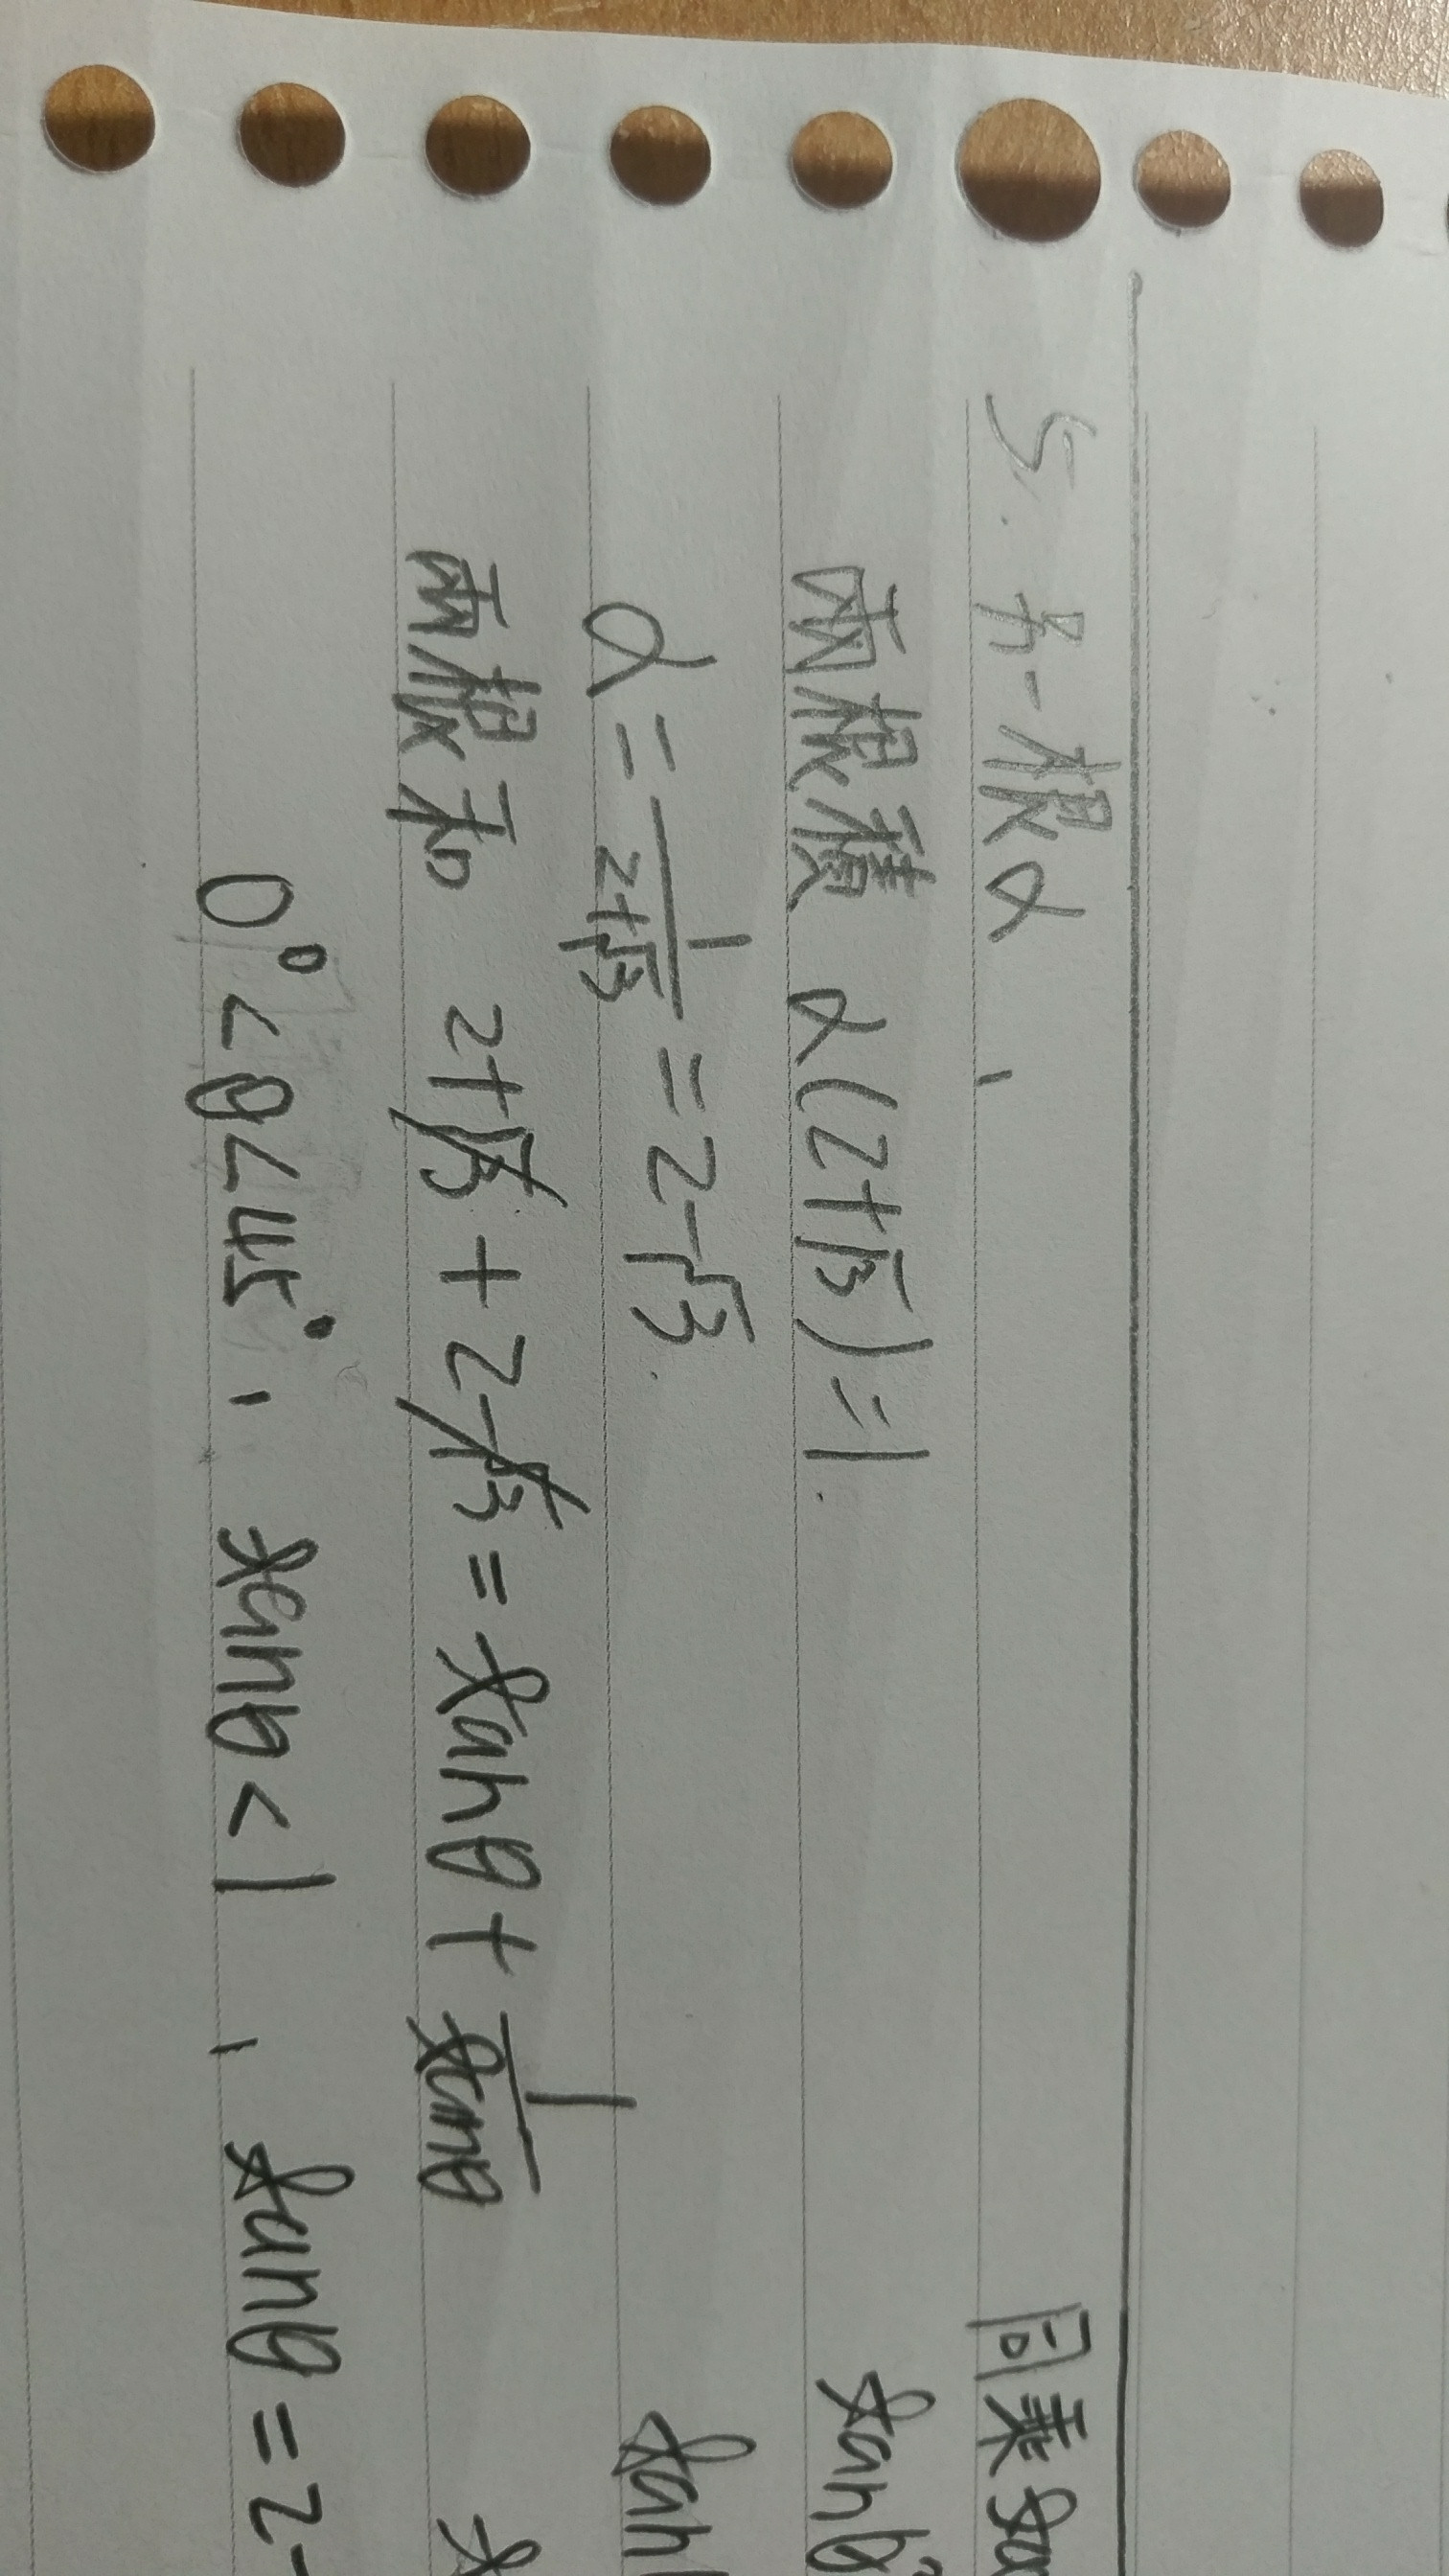 5. 另一根α,
兩根積 α(2+√3)=1.
α = 1/(2+√3) = 2-√3.
兩根和 2+√3 + 2-√3 = tanθ + 1/tanθ
0°<θ<45°, tanθ<1, tanθ=2-
同乘 tan
tanθ
tan